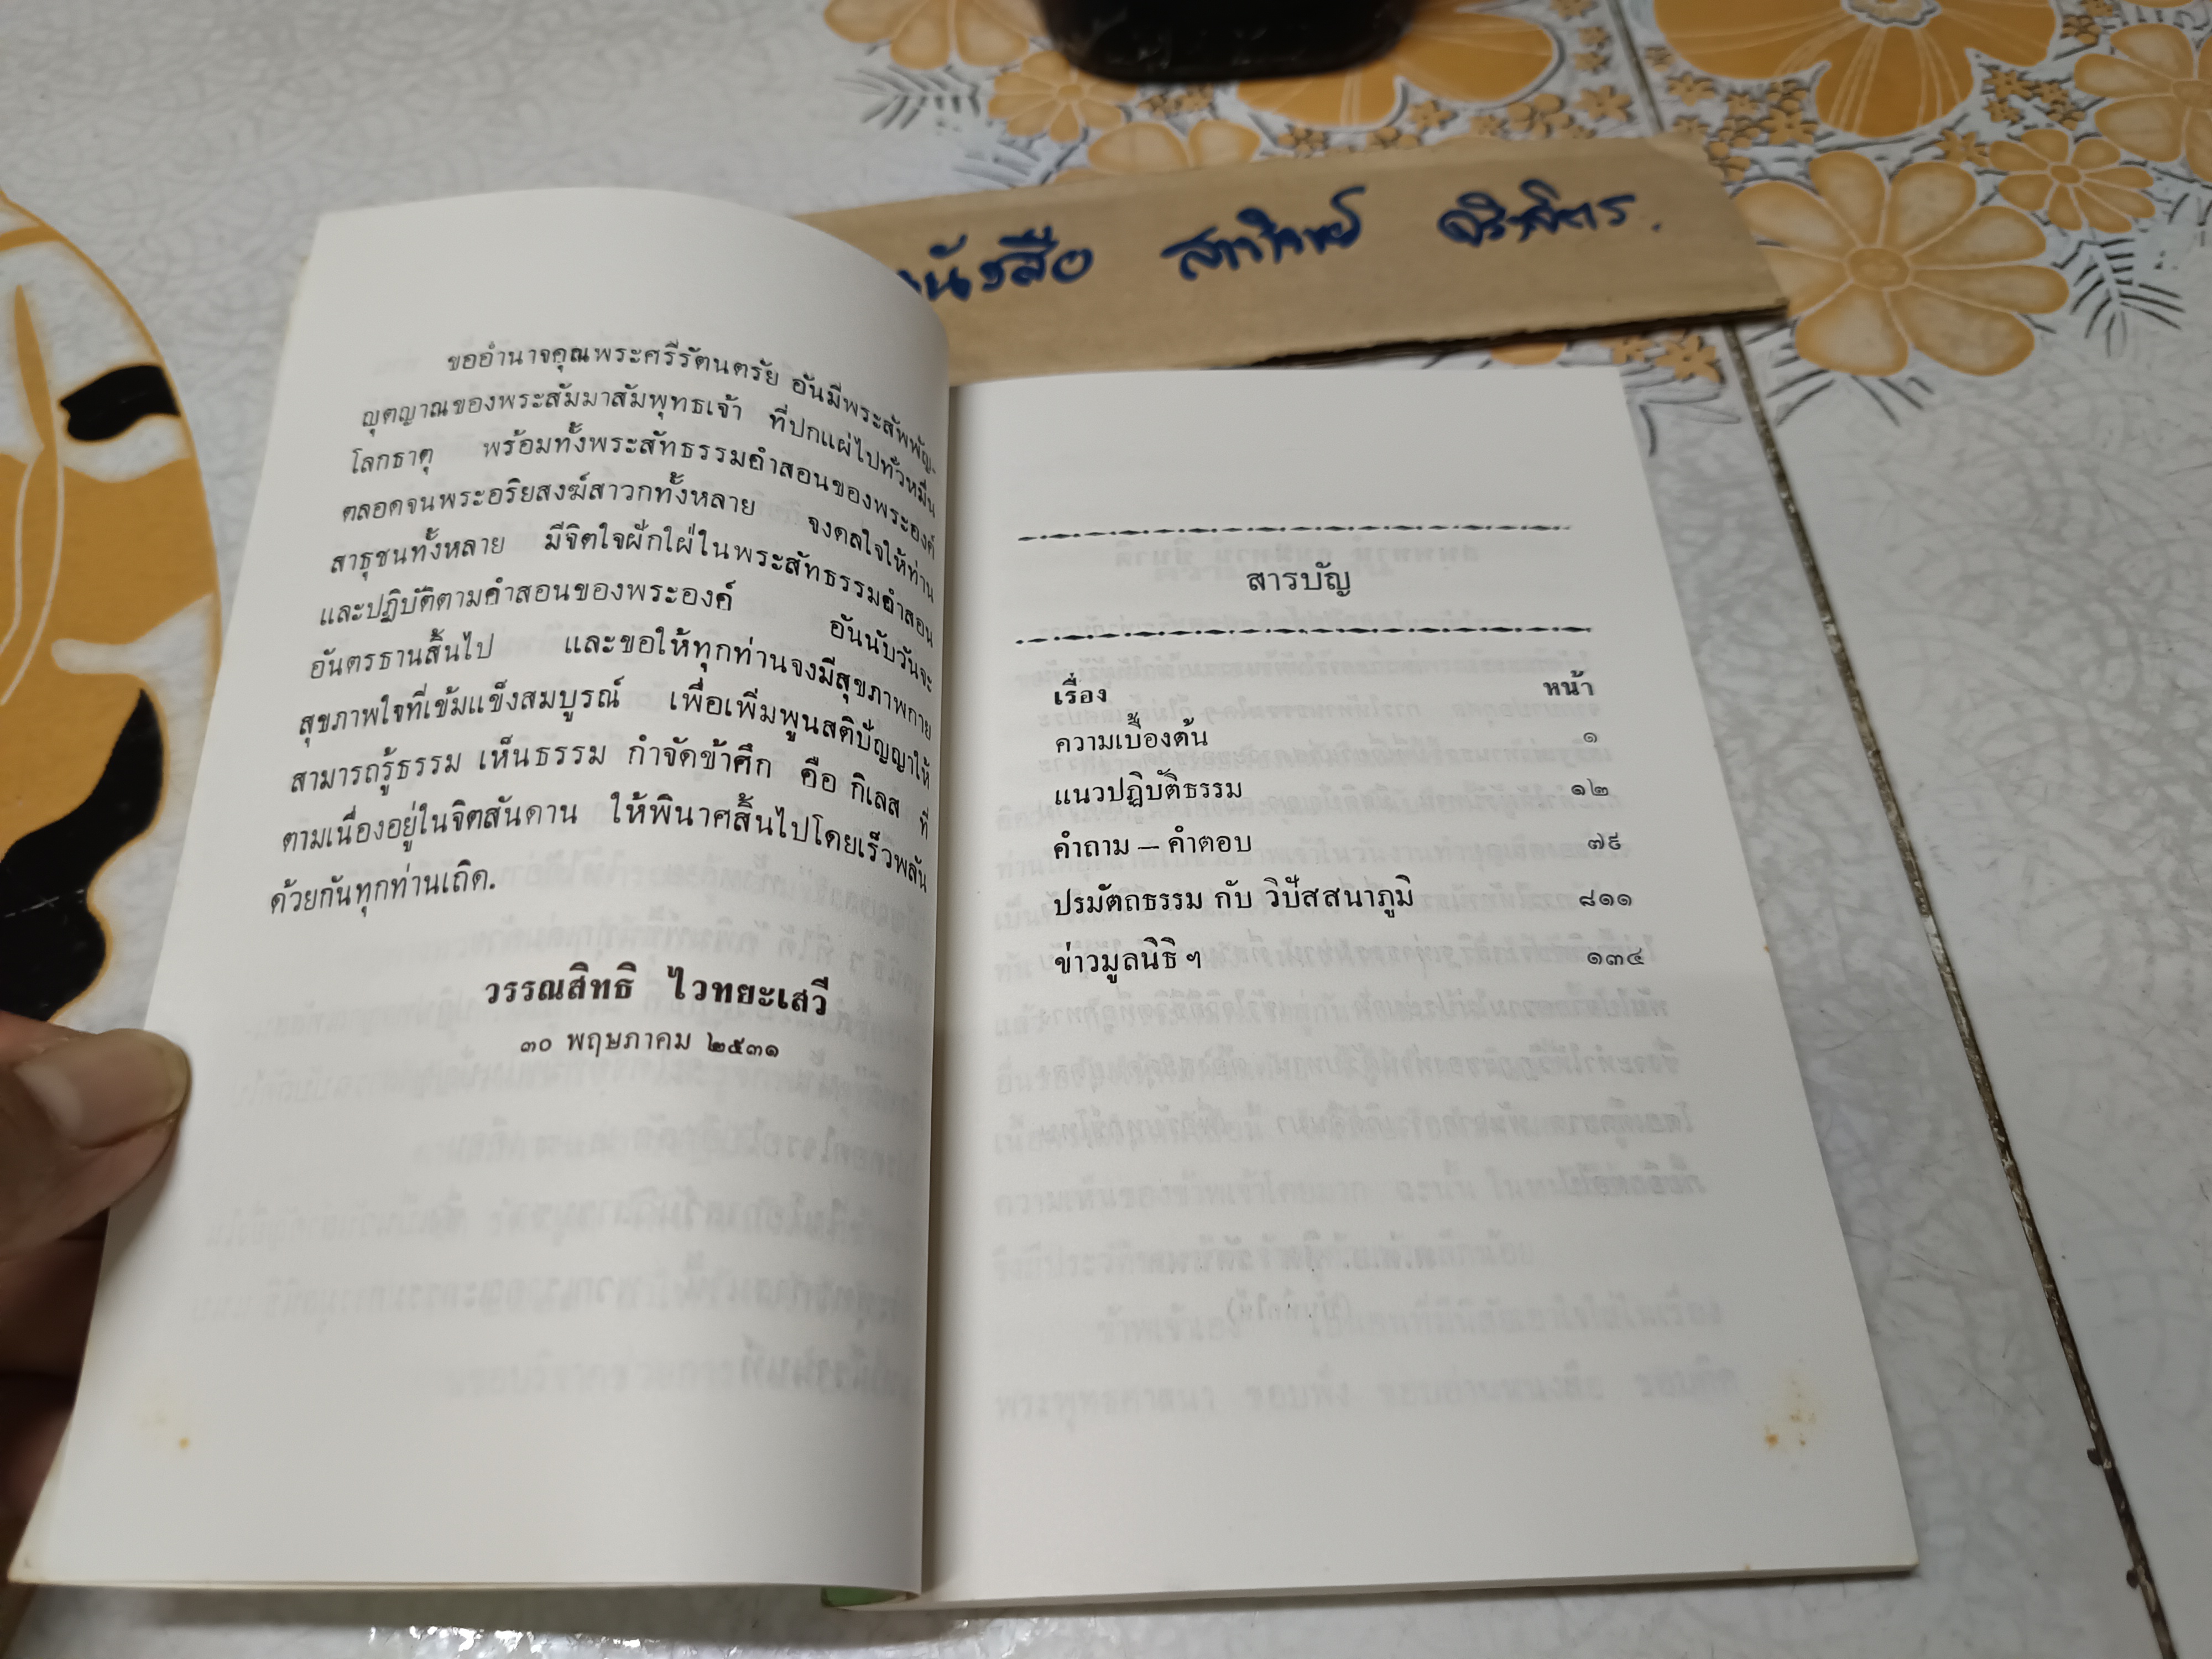 หนังสือ
ขออำนาจคุณพระศรีรัตนตรัย อันมีพระสัพพัญ-
ญุตญาณของพระสัมมาสัมพุทธเจ้า ที่ปกแผ่ไปทั่วหมื่น
โลกธาตุ พร้อมทั้งพระสัทธรรมคำสอนของพระองค์
ตลอดจนพระอริยสงฆ์สาวกทั้งหลาย จงดลใจให้ท่าน
สาธุชนทั้งหลาย มีจิตใจฝักใฝ่ในพระสัทธรรมคำสอน
และปฏิบัติตามคำสอนของพระองค์ อันนับวันจะ
อันตรธานสิ้นไป และขอให้ทุกท่านจงมีสุขภาพกาย
สุขภาพใจที่เข้มแข็งสมบูรณ์ เพื่อเพิ่มพูนสติปัญญาให้
สามารถรู้ธรรม เห็นธรรม กำจัดข้าศึก คือ กิเลส ที่
ตามเนื่องอยู่ในจิตสันดาน ให้พินาศสิ้นไปโดยเร็วพลัน
ด้วยกันทุกท่านเถิด.
วรรณสิทธิ ไวทยะเสวี
๓๐ พฤษภาคม ๒๕๓๑
สารบัญ
เรื่อง หน้า
ความเบื้องต้น ๑
แนวปฏิบัติธรรม ๑๒
คำถาม – คำตอบ ๗๙
ปรมัตถธรรม กับ วิปัสสนาภูมิ ๘๑๑
ข่าวมูลนิธิ ฯ ๑๓๔